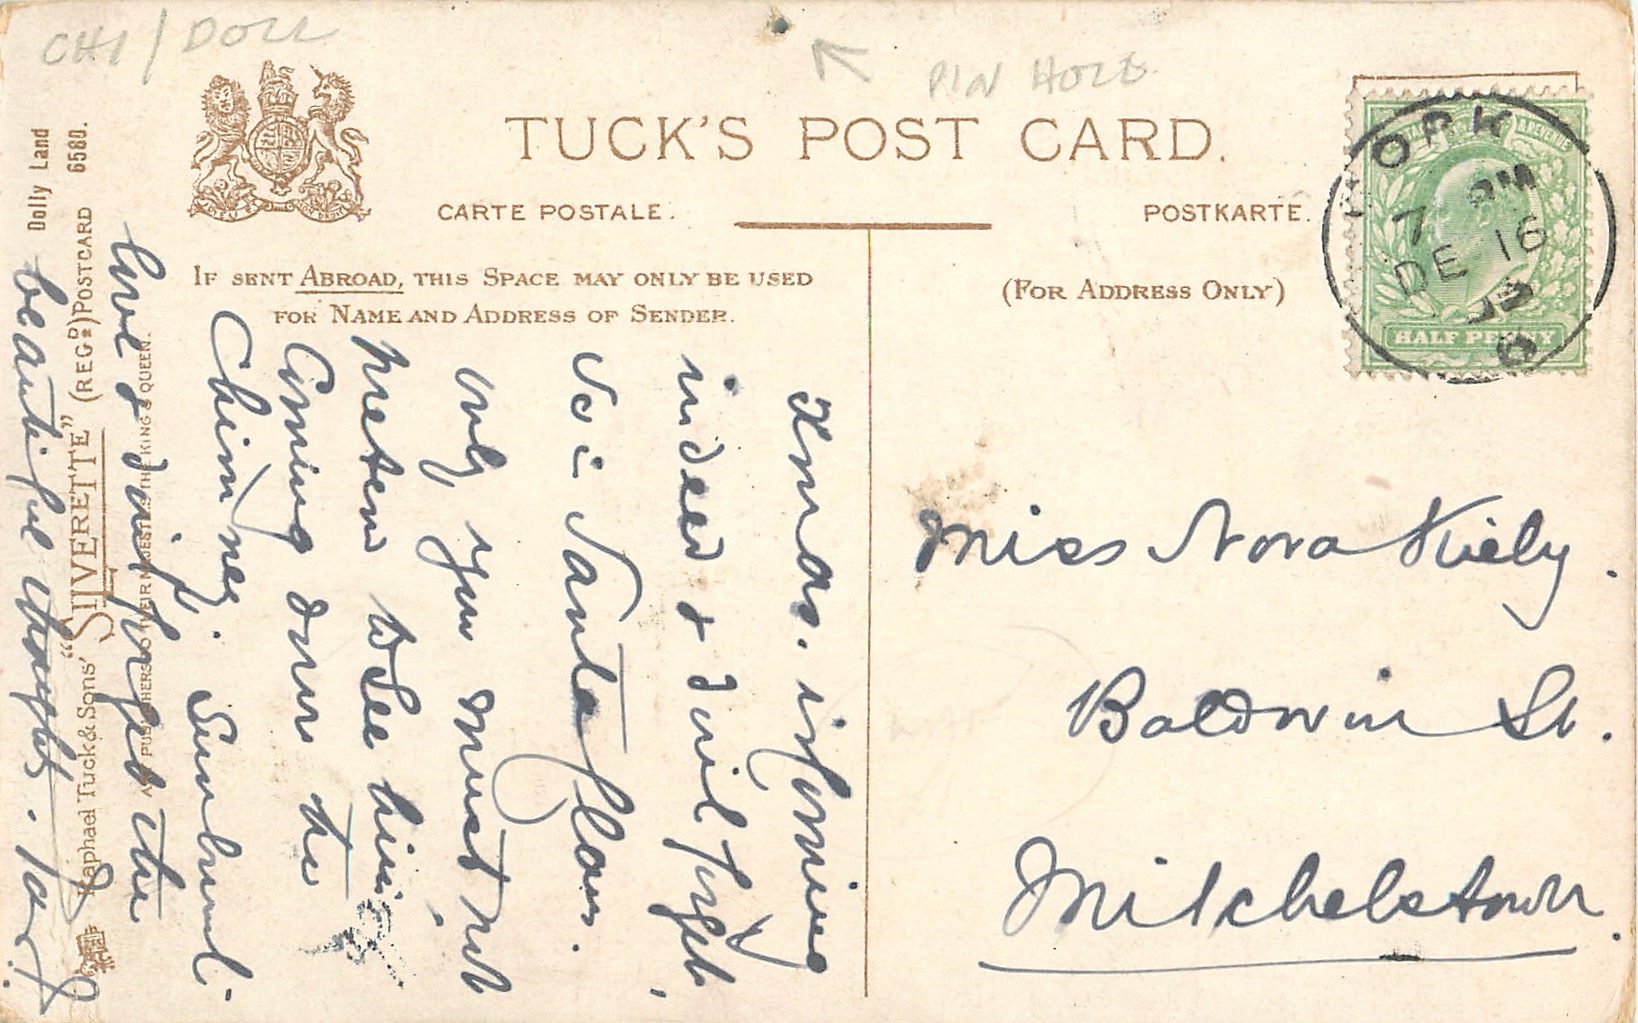 CHI / DOLL
PIN HOLE
TUCK'S POST CARD.
CARTE POSTALE.
POSTKARTE.
IF SENT ABROAD, THIS SPACE MAY ONLY BE USED
FOR NAME AND ADDRESS OF SENDER.
(FOR ADDRESS ONLY)
ORK
7 PM
DE 16
12
6
HALF PENNY
Xmas. is coming
indeed &
Santa Claus.
Only you must not
pretend to see him
Coming down the
Chimney.
love & don't forget the
beautiful thoughts.
Miss Nora Kiely.
Baldwin St.
Mitchelstown.
Dolly Land 6580.
Raphael Tuck & Sons' "SILVERETTE" (REGD) POSTCARD
ART PUBLISHERS TO THEIR MAJESTIES THE KING & QUEEN.